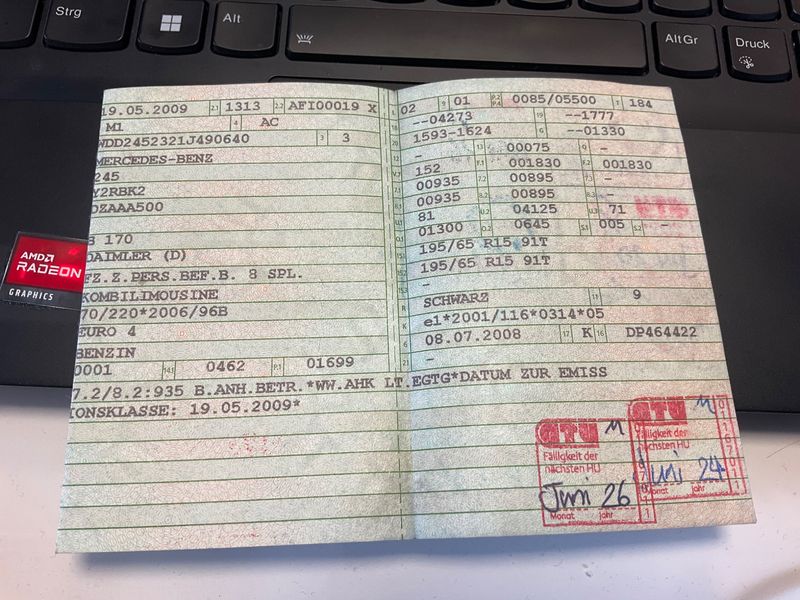 Strg
Alt
AltGr
Druck
AMD
RADEON
GRAPHICS
19.05.2009 2.1 1313 2.2 AFI00019 X
M1 4 AC
WDD2452321J490640 3 3
MERCEDES-BENZ
245
Y2RBK2
DZAAA500
B 170
DAIMLER (D)
FZ.Z.PERS.BEF.B. 8 SPL.
KOMBILIMOUSINE
70/220*2006/96B
EURO 4
BENZIN
0001 14.1 0462 P.1 01699
7.2/8.2:935 B.ANH.BETR.*WW.AHK LT.EGTG*DATUM ZUR EMISS
IONSKLASSE: 19.05.2009*
02 9 01 P.2 P.4 0085/05500 T 184
18 --04273 19 --1777
20 1593-1624 G --01330
12 - 13 00075 Q -
152 F.1 001830 F.2 001830
7.1 00935 7.2 00895 7.3 -
8.1 00935 8.2 00895 8.3 -
U.1 81 U.2 04125 U.3 71
O.1 01300 O.2 0645 S.1 005 S.2 -
15.1 195/65 R15 91T
15.2 195/65 R15 91T
15.3 -
R SCHWARZ 11 9
K e1*2001/116*0314*05
6 08.07.2008 17 K 16 DP464422
21 -
GTÜ
Fälligkeit der
nächsten HU
Juni 26
Monat Jahr
GTÜ
Fälligkeit der
nächsten HU
Juni 24
Monat Jahr